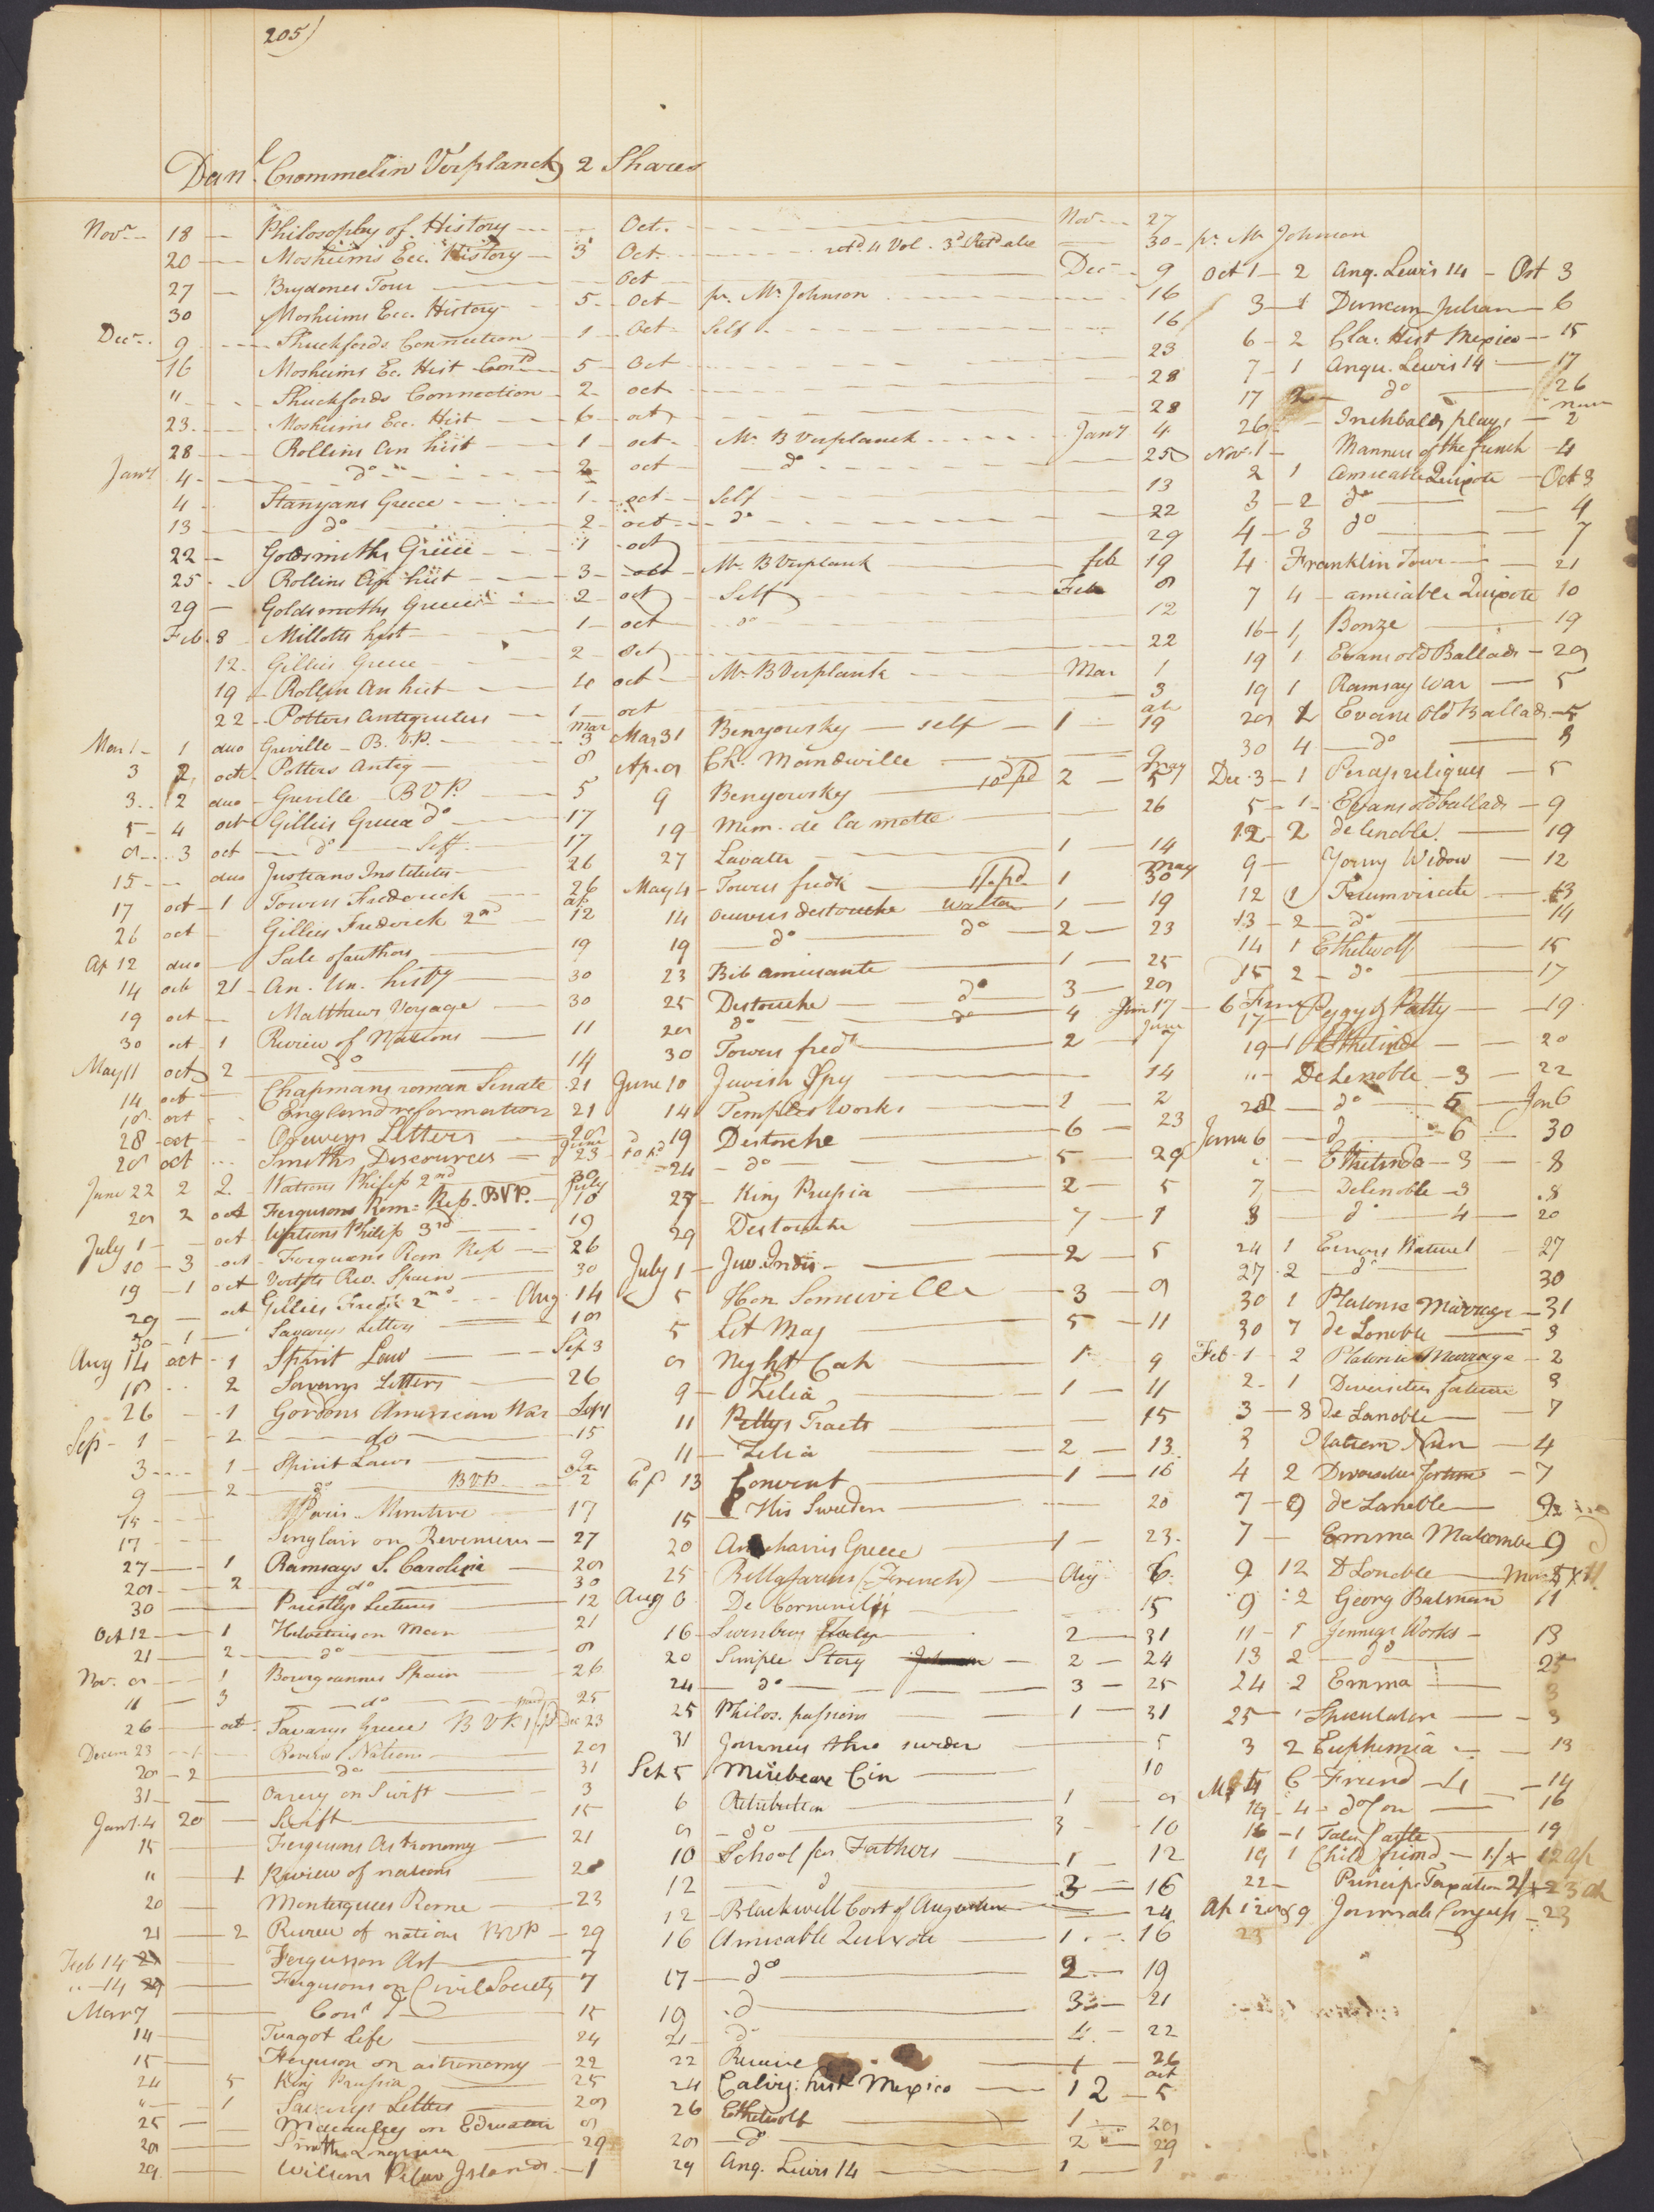 205)
Danl. Crommelin Verplanck 2 Shares
Novr 18 Philosophy of History Oct. Nov 27
20 Mosheims Ecc. History 3 Oct. 30 pr. Mr Johnson
27 Brydones Tour Oct Dec 9
30 Mosheims Ecc. History 5 Oct pr. Mr Johnson 16
Decr. 9 Shuckfords Connection 1 Oct Self 16
16 Mosheims Ec. Hist Contd 5 Oct 23
" Shuckfords Connection 2 oct 28
23 Mosheims Ecc. Hist 6 oct 28
28 Rollins An hist 1 oct Mr B Verplanck Jany 4
Jany 4 do 2 oct do 25
4 Stanyans Greece 1 oct Self 13
13 do 2 oct do 22
22 Goldsmiths Greece 1 oct 29
25 Rollins An hist 3 oct Mr B Verplank feb 19
29 Goldsmiths Greece 2 oct Self Feb 8
Feb. 8 Millotts hist 1 oct do 12
12 Gillies Greece 2 Oct 22
19 Rollin An hist 4 oct Mr B Verplank Mar 1
22 Potters Antiquities 1 oct 3
Mar 1 1 duo Greville B. V.P. Mar 3
3 2 oct Potters Antiq 8
3 2 duo Greville B V P. 5
5 4 oct Gillies Greece do 17
8 3 oct do Self 17
15 duo Justians Institutes 26
17 oct 1 Towers Frederick 26
26 oct Gillies Frederick 2nd ap 12
Ap 12 duo Sale of authors 19
14 oct 21 An. Un. histy 30
19 oct Matthews Voyage 30
30 oct 1 Review of Nations 11
May 11 oct 2 do 14
14 oct Chapmans roman Senate 21
18 oct England reformation 21
28 oct Orreverys Letters 28
28 oct Smiths Discources June 23
June 22 2 2 Watsons Philip 2nd 30
28 2 oct Fergusons Rom: Rep. BVP. July 10
July 1 oct Watsons Philip 3rd 19
10 3 oct Fergusons Rom Rep 26
19 1 oct Vertots Rev. Spain 30
29 oct Gillies Fredk 2nd Aug. 14
30 1 Savarys Letters 18
Aug 14 oct 1 Spirit Laws Sep 3
18 2 Savarys Letters 26
26 1 Gordons American War Sep 1
Sep 1 2 do 15
3 1 Spirit Laws 9
9 2 do B V P. 2
17 Singlair on Revenues 27
27 1 Ramsays S. Carolina 28
28 2 do 30
30 Priestlys Lectures 12
Oct 12 1 Helvetius on Man 21
21 2 do 8
Nov. 8 1 Bourgoannes Spain 26
11 3 do 25
26 oct Savarys Greece B V P. Dec 23
Decem 23 1 Review Nations 28
28 2 do 31
31 Orrery on Swift 3
Jany 4 20 Swift 15
15 Fergusons Astronomy 21
" 1 Review of nations 20
20 Montesquees Rome 23
21 2 Review of nations BVP 29
Feb 14 Fergusson Ast 7
" 14 Fergusons on Civil Society 7
Mar 7 Cont do 15
14 Turgot Life 24
15 Ferguson on astronomy 22
24 5 King Prussia 25
" 1 Savarys Letters 28
25 Macaulay on Education 8
28 Smiths Longinus 29
29 Wilsons Pelew Islands 1
Mar 31 Benyowsky self 1 ap 19
Ap. 8 Ch. Mandeville 9
9 Benyowsky 10d pd 2 May 5
19 Mem. de la motte 26
27 Lavater 1 14
May 4 Towers fredk 1/. pd. 1 May 30
14 Oeuvres destouche Walton 1 19
19 do do 2 23
23 Bib amusante 1 25
25 Destouche do 3 28
28 do do 4 Jun 17
30 Towers fredk 2 June 7
June 10 Jewish Spy 14
14 Temples Works 1 2
19 Destouche 6 23
24 do 5 29
27 King Prussia 2 5
29 Destouche 7 1
July 1 Juv. Indis 2 5
5 Hon Somerville 3 9
5 Lit Mag 5 11
8 Night Cap 1 9
9 Zelia 1 11
11 Pettys Tracts 15
11 Zelia 2 13
13 Convent 1 16
15 His Sweden 20
20 Anacharsis Greece 1 23
25 Bellasarius (French) Aug 6
Aug 6 De Corneville 15
16 Swinburg Italy 2 31
20 Simple Story 2 24
24 do 3 25
25 Philos. passions 1 31
31 Journey thro sweden 5
Sep 5 Mirebeau Cin 10
6 Retribution 1 8
8 do 3 10
10 School for Fathers 1 12
12 do 3 16
12 Blackwell Cort of Augustus 24
16 Amicable Quixote 1 16
17 do 2 19
19 do 3 21
21 do 4 22
22 Recuive 1 26
24 Calvig: hist Mexico 1 2 oct 5
26 Ethelwolf 1 28
28 do 2 29
29 Anq. Lewis 14 1 1
Oct 1 2 Anq. Lewis 14 Oct 3
3 1 Duncan Julian 6
6 2 Cla. Hist Mexico 15
7 1 Anqu. Lewis 14 17
17 2 do 26
26 Inchbalds plays Nov 2
Nov. 1 Manners of the french 4
2 1 Amicable Quixote Oct 3
3 2 do 4
4 3 do 7
4 Franklin Tour 21
7 4 amicable Quixote 10
16 1 Bonze 19
19 1 Evans old Ballads 28
19 1 Ramsay War 5
28 2 Evans Old Ballads 5
30 4 do 8
Dec. 3 1 Percys reliques 5
5 1 Evans old ballads 9
12 2 de lenoble 19
9 Young Widow 12
12 1 Triumvirate 13
13 2 do 14
14 1 Ethelwolf 15
15 2 do 17
17 Peggy & Patty 19
19 1 Ethelinde 20
" De Lenoble 3 22
28 do 5 Jan 6
Janu 6 do 6 30
" Ethelinde 3 8
7 Delenoble 3 8
8 do 4 20
24 1 Errors Nature 27
27 2 do 30
30 1 Platonic Marriage 31
30 7 de Lenoble 3
Feb 1 2 Platonic Marriage 2
2 1 Diversities fortune 3
3 8 de Lanoble 7
3 Platrem Nun 4
4 2 Diversities fortune 7
7 9 de Lanoble 9
7 Emma Malcombe 9
9 12 D Lenoble
9 2 Georg Batman 11
11 1 Jennings Works 13
13 2 do 25
24 2 Emma 3
25 1 Speculator 3
3 2 Euphemia 13
6 Friend 14
14 4 do 16
16 1 Tales Castle 19
19 1 Child friend 12 Ap
22 Princip. Taxation 23
Journals Congress 23